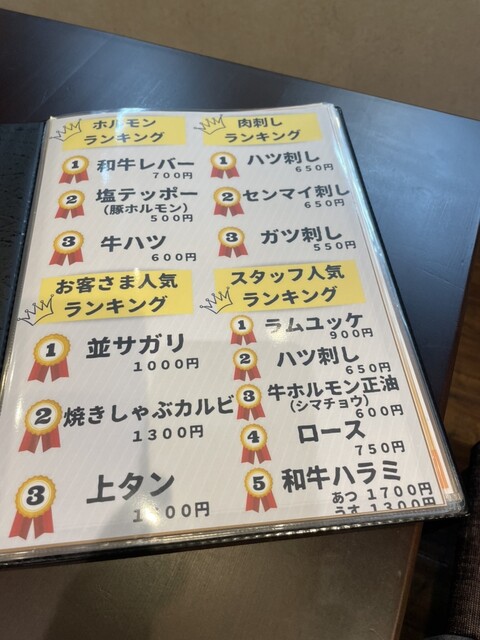 ホルモン
ランキング
1 和牛レバー
700円
2 塩テッポー
(豚ホルモン)
500円
3 牛ハツ
600円
肉刺し
ランキング
1 ハツ刺し
650円
2 センマイ刺し
650円
3 ガツ刺し
550円
お客さま人気
ランキング
1 並サガリ
1000円
2 焼きしゃぶカルビ
1300円
3 上タン
スタッフ人気
ランキング
1 ラムユッケ
900円
2 ハツ刺し
650円
3 牛ホルモン正油
(シマチョウ)
600円
4 ロース
750円
5 和牛ハラミ
あつ 1700円
うす 1300円